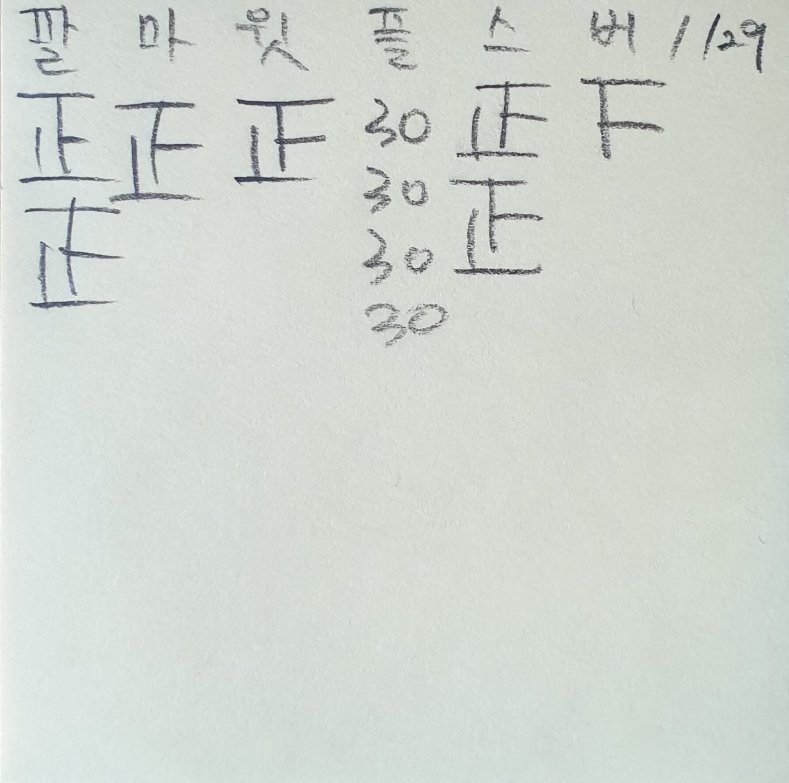 팔 마 윗 플 스 버 1/29
正 正 正 30 正 F
30
正 30 正
30